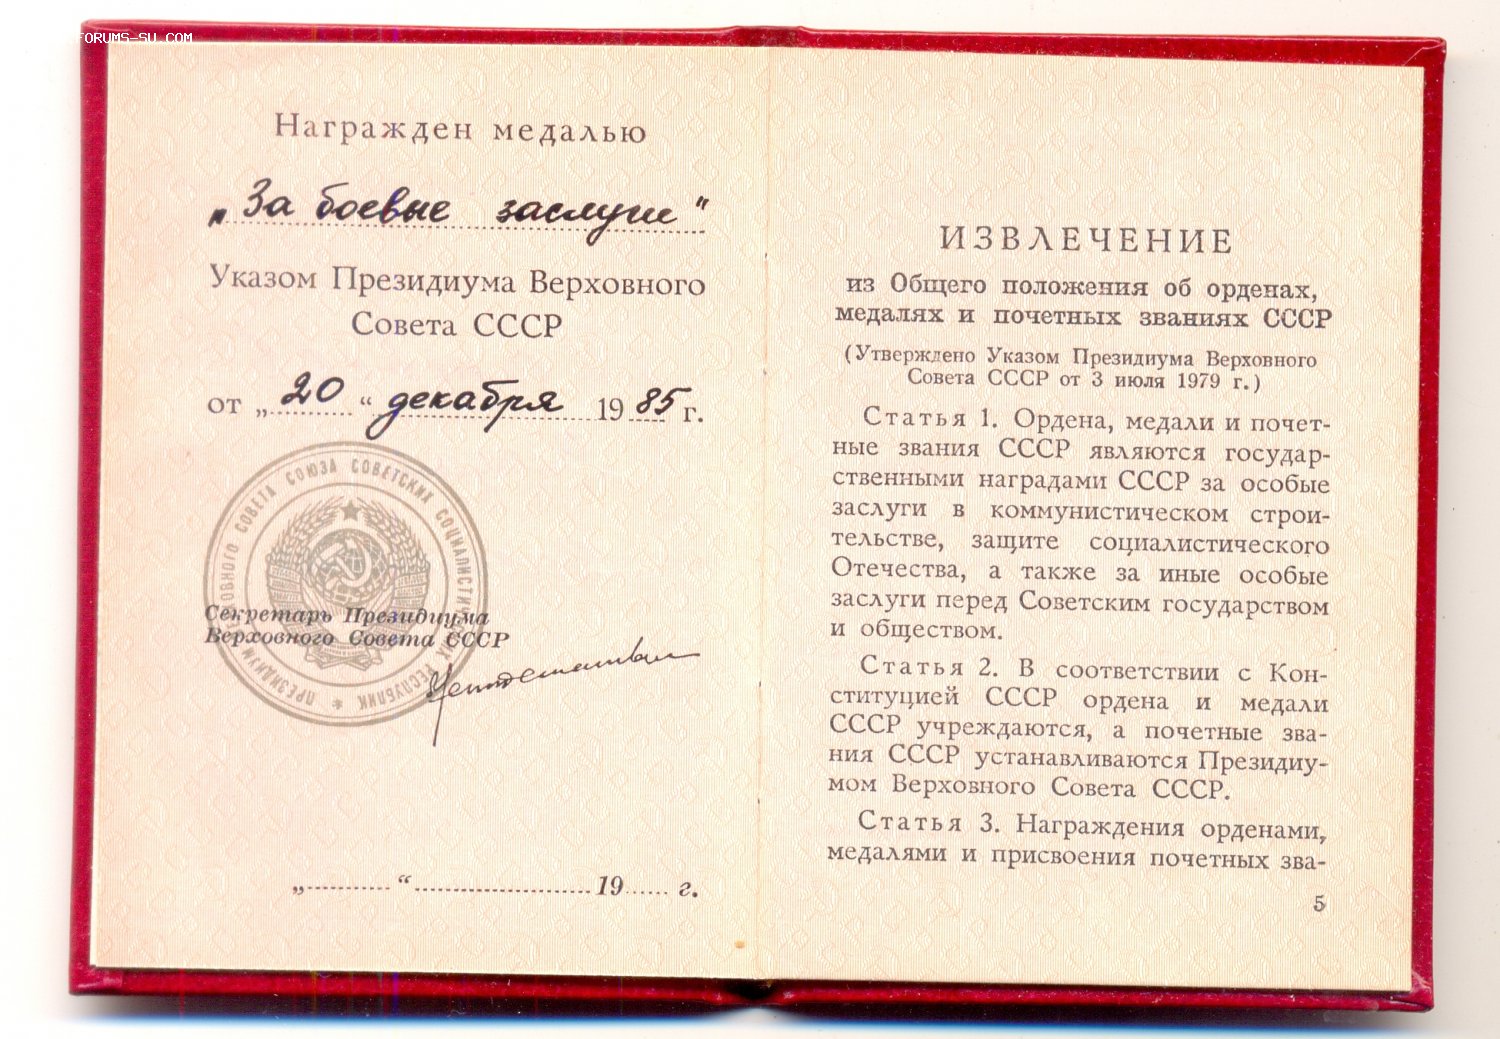 FORUMS-SU.COM
Награжден медалью
„За боевые заслуги"
Указом Президиума Верховного
Совета СССР
от „20“ декабря 1985 г.
ПРЕЗИДИУМ ВЕРХОВНОГО СОВЕТА СОЮЗА СОВЕТСКИХ СОЦИАЛИСТИЧЕСКИХ РЕСПУБЛИК *
Секретарь Президиума
Верховного Совета СССР
„..........“ .......................... 19...... г.
ИЗВЛЕЧЕНИЕ
из Общего положения об орденах,
медалях и почетных званиях СССР
(Утверждено Указом Президиума Верховного
Совета СССР от 3 июля 1979 г.)
Статья 1. Ордена, медали и почет-
ные звания СССР являются государ-
ственными наградами СССР за особые
заслуги в коммунистическом строи-
тельстве, защите социалистического
Отечества, а также за иные особые
заслуги перед Советским государством
и обществом.
Статья 2. В соответствии с Кон-
ституцией СССР ордена и медали
СССР учреждаются, а почетные зва-
ния СССР устанавливаются Президиу-
мом Верховного Совета СССР.
Статья 3. Награждения орденами,
медалями и присвоения почетных зва-
5